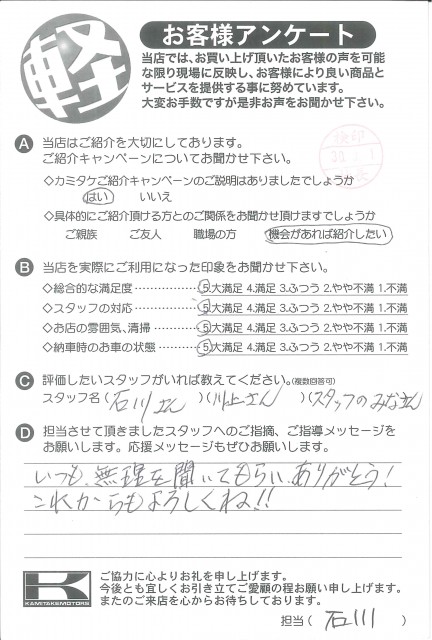 軽
お客様アンケート
当店では、お買い上げ頂いたお客様の声を可能
な限り現場に反映し、お客様により良い商品と
サービスを提供する事に努めています。
大変お手数ですが是非お声をお聞かせ下さい。
A 当店はご紹介を大切にしております。
ご紹介キャンペーンについてお聞かせ下さい。
◇カミタケご紹介キャンペーンのご説明はありましたでしょうか
はい いいえ
◇具体的にご紹介頂ける方とのご関係をお聞かせ頂けますでしょうか
ご親族 ご友人 職場の方 機会があれば紹介したい
B 当店を実際にご利用になった印象をお聞かせ下さい。
◇総合的な満足度……………5.大満足 4.満足 3.ふつう 2.やや不満 1.不満
◇スタッフの対応……………5.大満足 4.満足 3.ふつう 2.やや不満 1.不満
◇お店の雰囲気、清掃…………5.大満足 4.満足 3.ふつう 2.やや不満 1.不満
◇納車時のお車の状態…………5.大満足 4.満足 3.ふつう 2.やや不満 1.不満
C 評価したいスタッフがいれば教えてください。(複数回答可)
スタッフ名(石川さん)(川上さん)(スタッフのみなさん)
D 担当させて頂きましたスタッフへのご指摘、ご指導メッセージを
お願いします。応援メッセージもぜひお願いします。
いつも、無理を聞いてもらい、ありがとう!
これからもよろしくね!!
KAMITAKEMOTORS
ご協力に心よりお礼を申し上げます。
今後とも宜しくお引き立てご愛顧の程お願い申し上げます。
またのご来店を心からお待ちしております。
担当(石川)